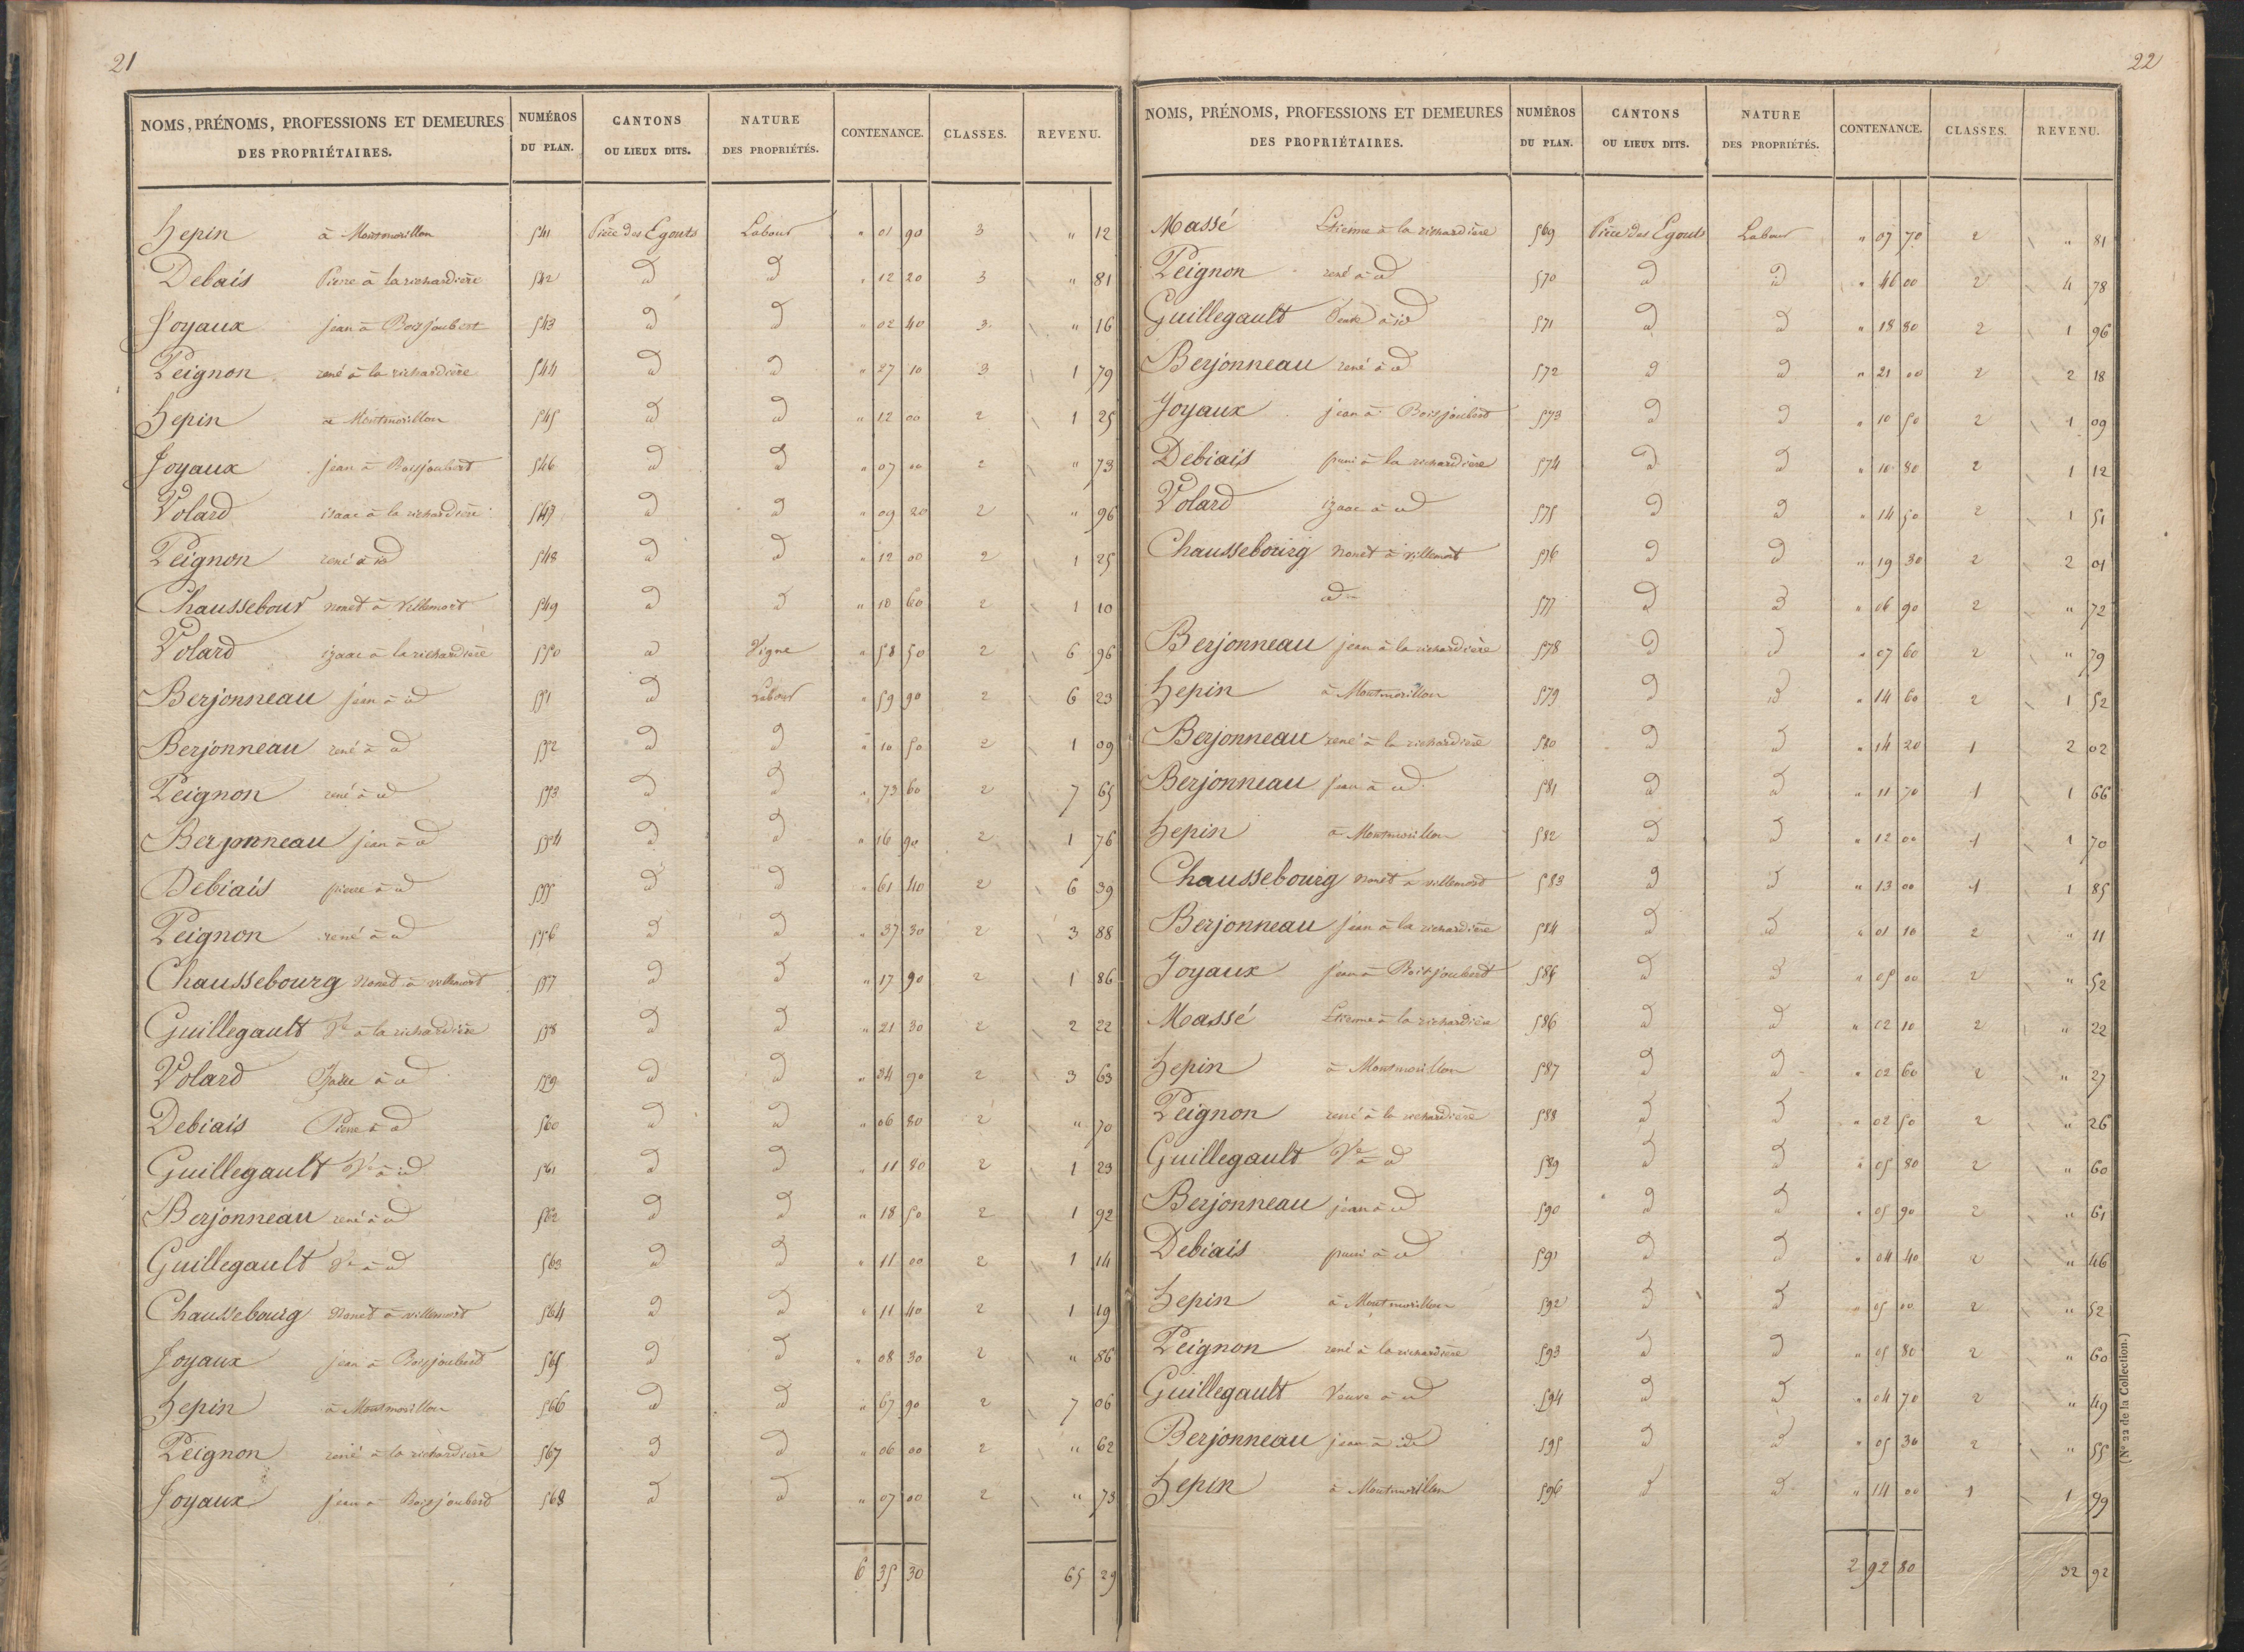 21
NOMS, PRÉNOMS, PROFESSIONS ET DEMEURES DES PROPRIÉTAIRES. NUMÉROS DU PLAN. CANTONS OU LIEUX DITS. NATURE DES PROPRIÉTÉS. CONTENANCE. CLASSES. REVENU.
Hepin à Montmorillon 541 Pièce des Egouts Labour " 01 90 3 " 12
Debais Pierre à la richardière 542 id id " 12 20 3 " 81
Joyaux jean à Boisjoubert 543 id id " 02 40 3 " 16
Peignon rené à la richardière 544 id id " 27 10 3 1 79
Hepin à Montmorillon 545 id id " 12 00 2 1 25
Joyaux jean à Boisjoubert 546 id id " 07 00 2 " 73
Volard isaac à la richardière 547 id id " 09 20 2 " 96
Peignon rené à id 548 id id " 12 00 2 1 25
Chaussebour nonet à Villemort 549 id id " 10 60 2 1 10
Volard izaac à la richardière 550 id Vigne " 58 50 2 6 96
Berjonneau jean à id 551 id Labour " 59 90 2 6 23
Berjonneau rené à id 552 id id " 10 50 2 1 09
Peignon rené à id 553 id id " 73 60 2 7 65
Berjonneau jean à id 554 id id " 16 90 2 1 76
Debiais pierre à id 555 id id " 61 40 2 6 39
Peignon rené à id 556 id id " 37 30 2 3 88
Chaussebourg nonet à villemort 557 id id " 17 90 2 1 86
Guillegault Ve à la richardière 558 id id " 21 30 2 2 22
Volard à id 559 id id " 34 90 2 3 63
Debiais Pierre à id 560 id id " 06 80 2 " 70
Guillegault Ve à id 561 id id " 11 80 2 1 23
Berjonneau rené à id 562 id id " 18 50 2 1 92
Guillegault Ve à id 563 id id " 11 00 2 1 14
Chaussebourg Nonet à villemort 564 id id " 11 40 2 1 19
Joyaux jean à Boisjoubert 565 id id " 08 30 2 " 86
Hepin à Montmorillon 566 id id " 67 90 2 7 06
Peignon rené à la richardière 567 id id " 06 00 2 " 62
Joyaux jean à Boisjoubert 568 id id " 07 00 2 " 73
6 35 30 65 29
22
NOMS, PRÉNOMS, PROFESSIONS ET DEMEURES DES PROPRIÉTAIRES. NUMÉROS DU PLAN. CANTONS OU LIEUX DITS. NATURE DES PROPRIÉTÉS. CONTENANCE. CLASSES. REVENU.
Massé Etienne à la richardière 569 Pièce des Egouts Labour " 07 70 2 " 81
Peignon rené à id 570 id id " 46 00 2 4 78
Guillegault à id 571 id id " 18 80 2 1 96
Berjonneau rené à id 572 id id " 21 00 2 2 18
Joyaux jean à Boisjoubert 573 id id " 10 50 2 1 09
Debiais à la richardière 574 id id " 10 80 2 1 12
Volard izaac à id 575 id id " 14 50 2 1 51
Chaussebourg Nonet à Villemort 576 id id " 19 30 2 2 01
id 577 id id " 06 90 2 " 72
Berjonneau jean à la richardière 578 id id " 07 60 2 " 79
Hepin à Montmorillon 579 id id " 14 60 2 1 52
Berjonneau rené à la richardière 580 id id " 14 20 1 2 02
Berjonneau jean à id 581 id id " 11 70 1 1 66
Hepin à Montmorillon 582 id id " 12 00 1 1 70
Chaussebourg Nonet à villemort 583 id id " 13 00 1 1 85
Berjonneau jean à la richardière 584 id id " 01 10 2 " 11
Joyaux jean à Boisjoubert 585 id id " 05 00 2 " 52
Massé Etienne à la richardière 586 id id " 02 10 2 " 22
Hepin à Montmorillon 587 id id " 02 60 2 " 27
Peignon rené à la richardière 588 id id " 02 50 2 " 26
Guillegault Ve à id 589 id id " 05 80 2 " 60
Berjonneau jean à id 590 id id " 05 90 2 " 61
Debiais à id 591 id id " 04 40 2 " 46
Hepin à Montmorillon 592 id id " 05 00 2 " 52
Peignon rené à la richardière 593 id id " 05 80 2 " 60
Guillegault Veuve à id 594 id id " 04 70 2 " 49
Berjonneau jean à id 595 id id " 05 30 2 " 55
Hepin à Montmorillon 596 id id " 14 00 1 1 99
2 92 80 32 92
(N° 22 de la Collection.)